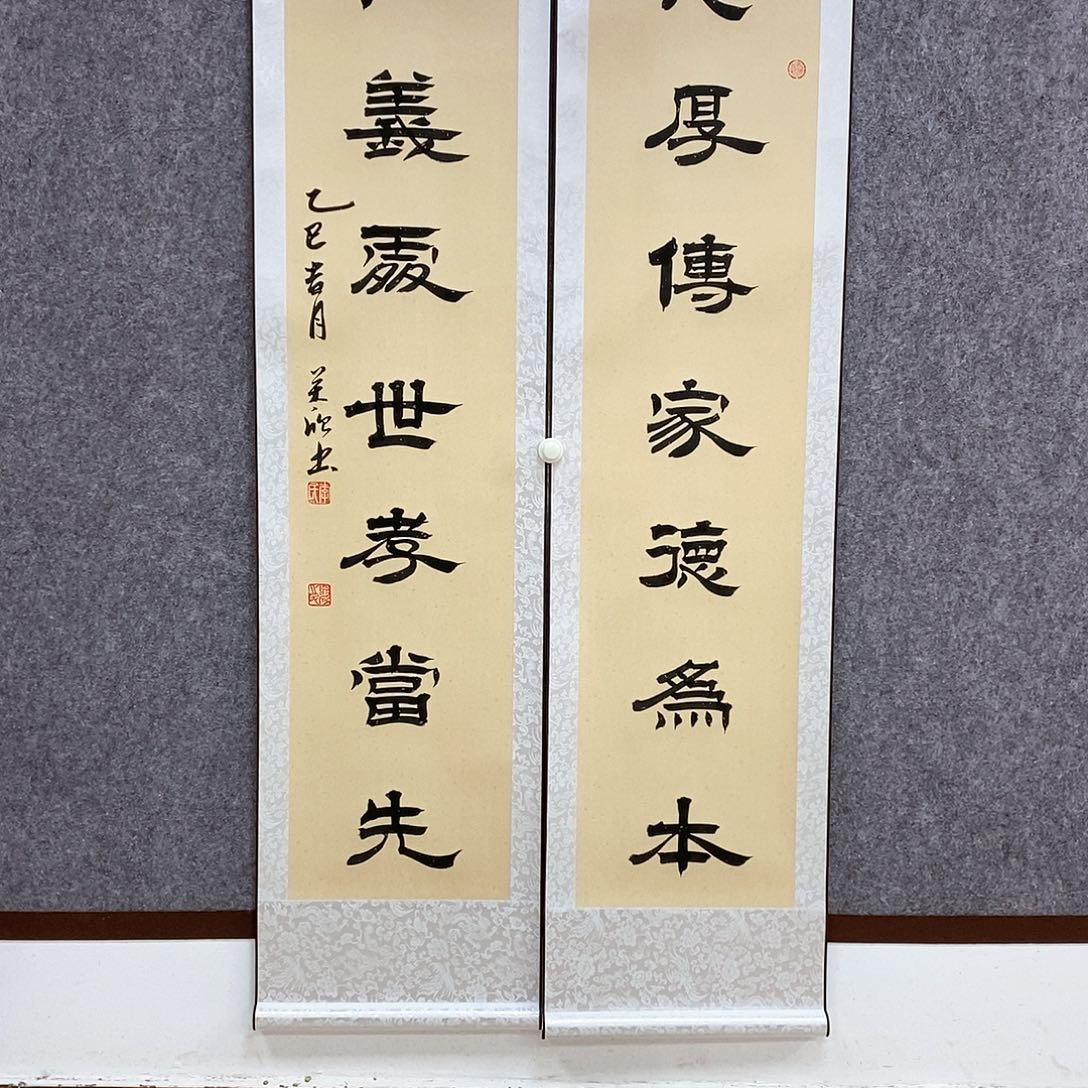 厚傳家德為本
義處世孝當先
乙巳吉月